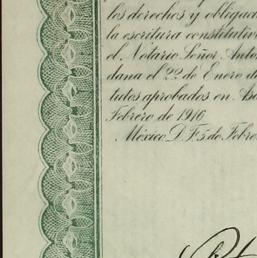 los derechos y obligac
la escritura constitutiv
el Notario Señor Anto
dana el 22 de Enero d
tutos aprobados en As
Febrero de 1916
México D. F. 5 de Febre